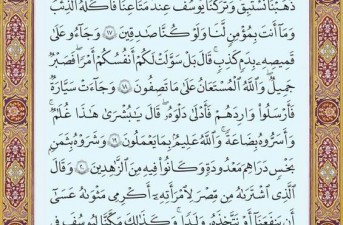 ذَهَبْنَا نَسْتَبِقُ وَتَرَكْنَا يُوسُفَ عِندَ مَتَٰعِنَا فَأَكَلَهُ ٱلذِّئْبُ
وَمَآ أَنتَ بِمُؤْمِنٍ لَّنَا وَلَوْ كُنَّا صَٰدِقِينَ ١٧ وَجَآءُو عَلَىٰ
قَمِيصِهِۦ بِدَمٍ كَذِبٍ ۚ قَالَ بَلْ سَوَّلَتْ لَكُمْ أَنفُسُكُمْ أَمْرًا ۖ فَصَبْرٌ
جَمِيلٌ ۖ وَٱللَّهُ ٱلْمُسْتَعَانُ عَلَىٰ مَا تَصِفُونَ ١٨ وَجَآءَتْ سَيَّارَةٌ
فَأَرْسَلُوا۟ وَارِدَهُمْ فَأَدْلَىٰ دَلْوَهُۥ ۖ قَالَ يَٰبُشْرَىٰ هَٰذَا غُلَٰمٌ ۚ
وَأَسَرُّوهُ بِضَٰعَةً ۚ وَٱللَّهُ عَلِيمٌۢ بِمَا يَعْمَلُونَ ١٩ وَشَرَوْهُ بِثَمَنٍۭ
بَخْسٍ دَرَٰهِمَ مَعْدُودَةٍ وَكَانُوا۟ فِيهِ مِنَ ٱلزَّٰهِدِينَ ٢٠ وَقَالَ
ٱلَّذِى ٱشْتَرَىٰهُ مِن مِّصْرَ لِٱمْرَأَتِهِۦٓ أَكْرِمِى مَثْوَىٰهُ عَسَىٰٓ
أَن يَنفَعَنَآ أَوْ نَتَّخِذَهُۥ وَلَدًا ۚ وَكَذَٰلِكَ مَكَّنَّا لِيُوسُفَ فِى